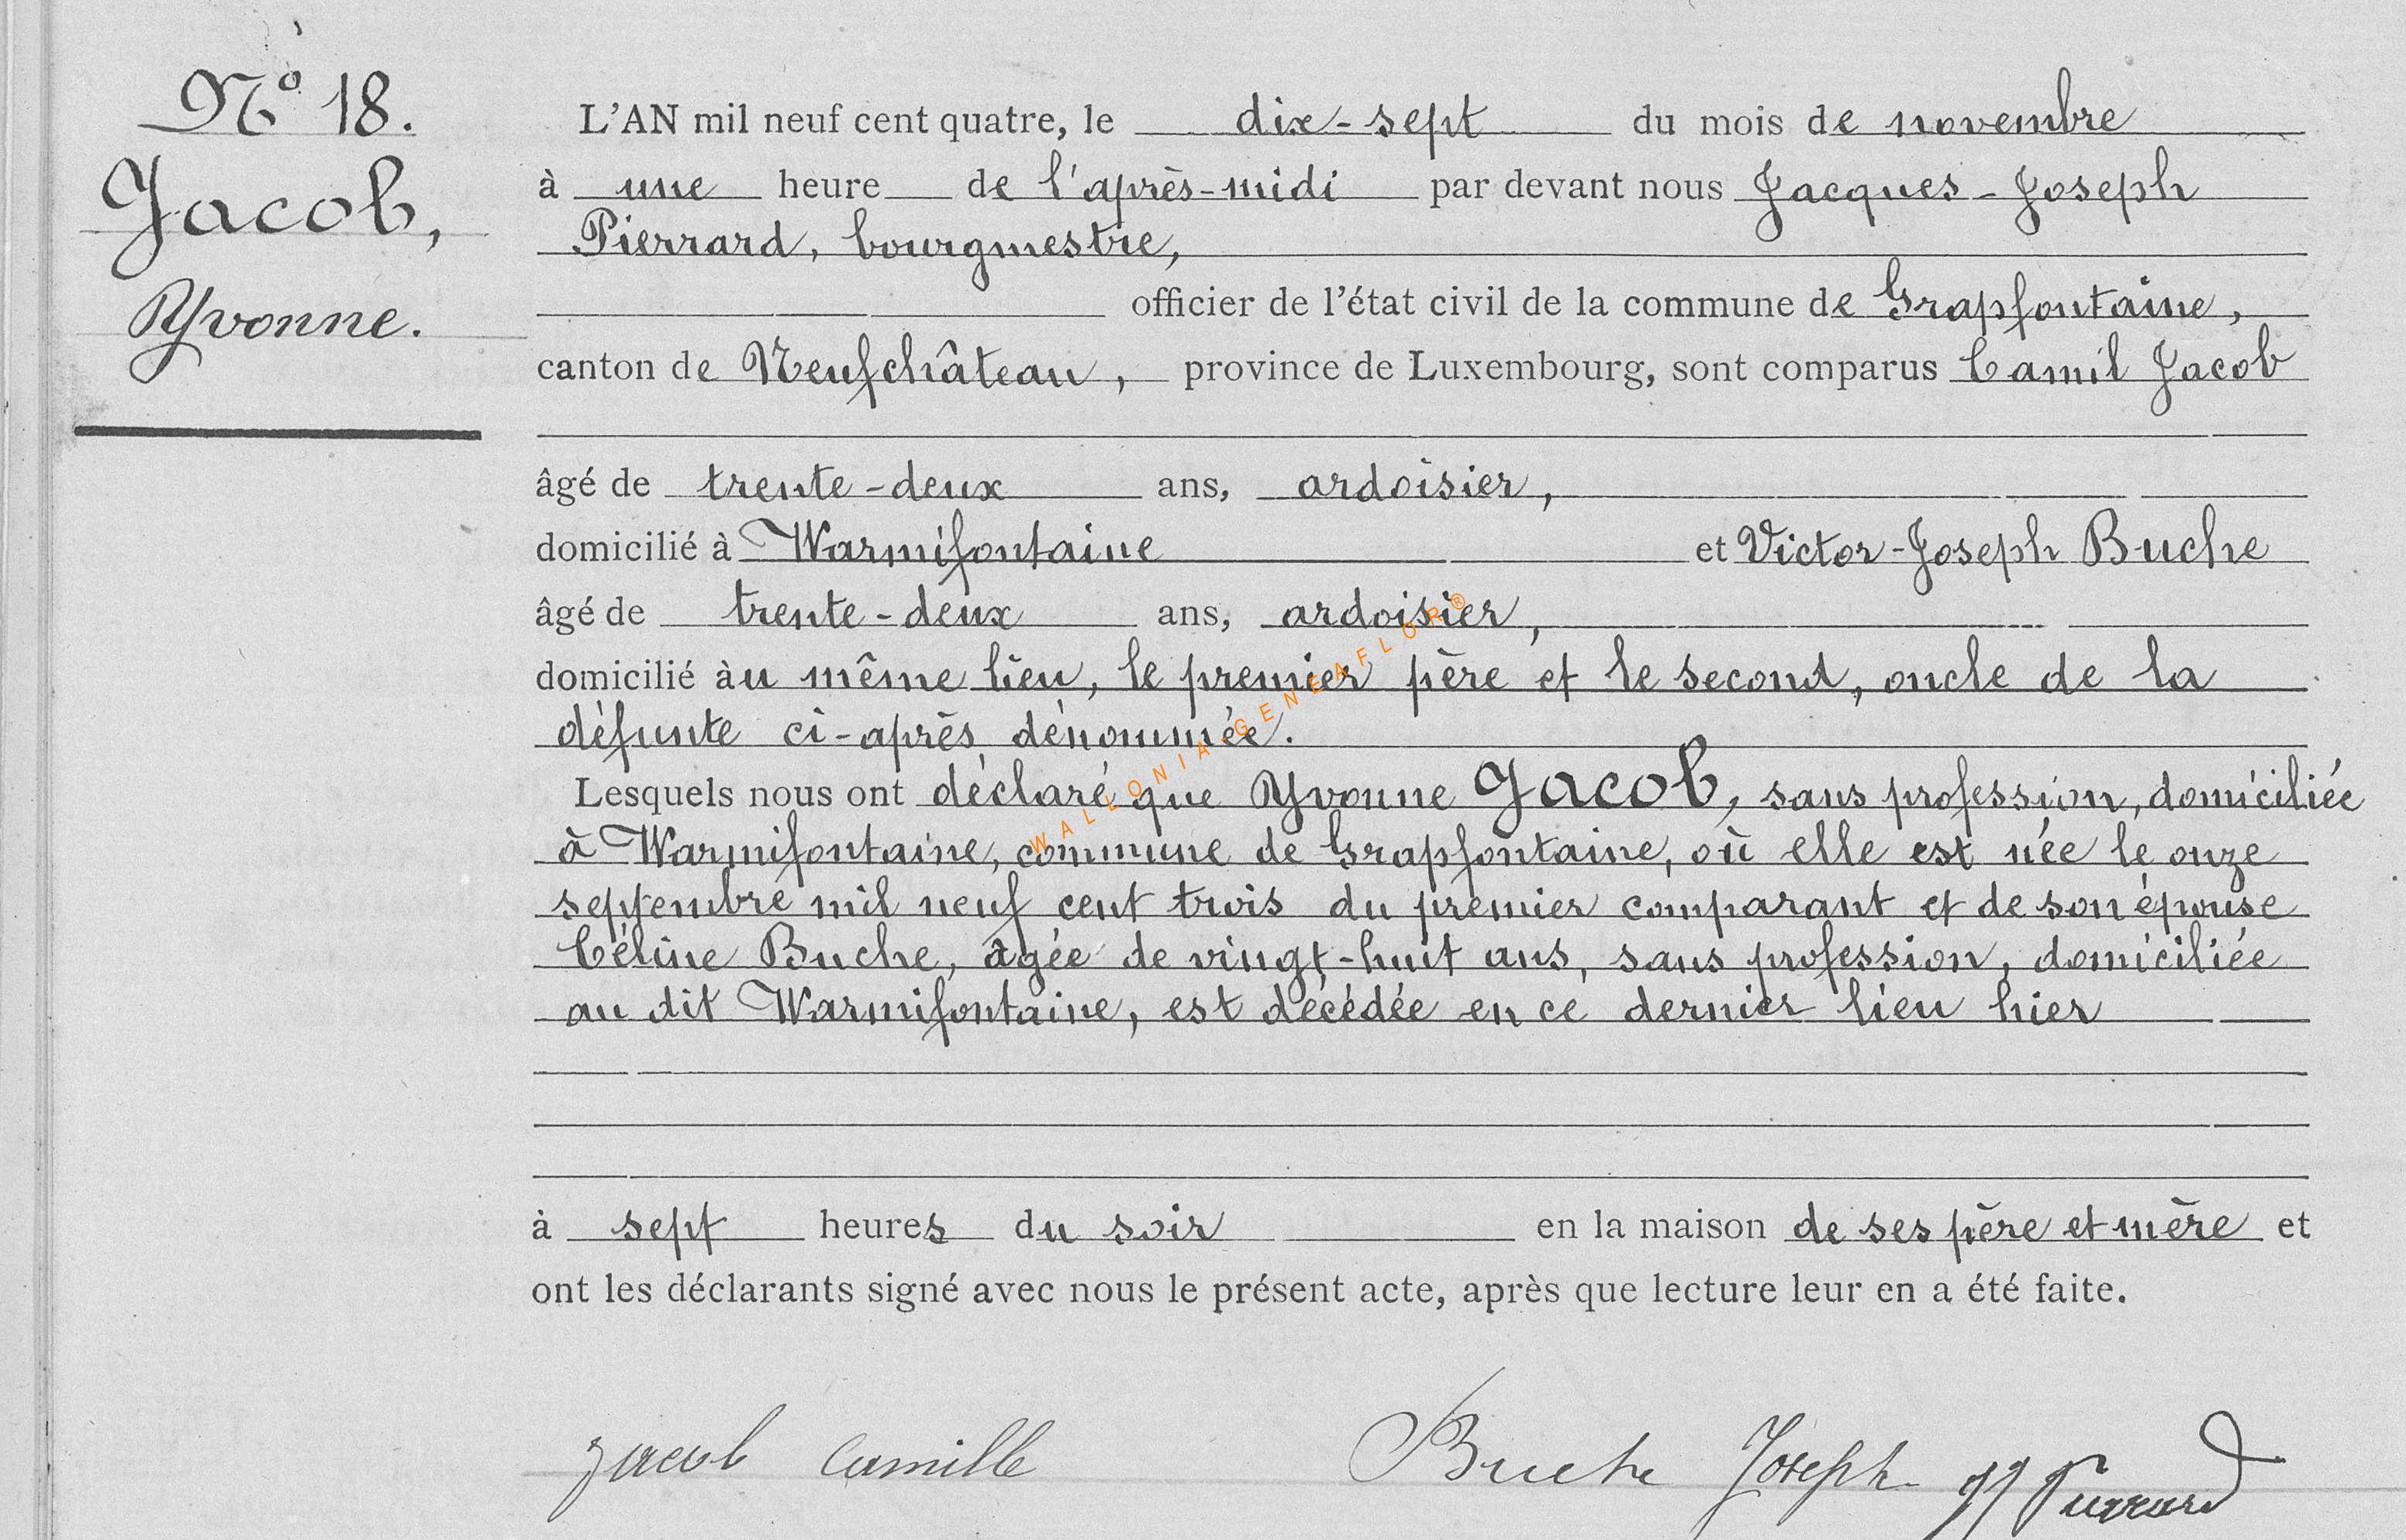 N° 18.
Jacob,
Yvonne.
L'AN mil neuf cent quatre, le dix-sept du mois de novembre
à une heure de l'après-midi par devant nous Jacques-Joseph
Pierrard, bourgmestre,
officier de l'état civil de la commune de Grapfontaine,
canton de Neufchâteau, province de Luxembourg, sont comparus Camil Jacob
âgé de trente-deux ans, ardoisier,
domicilié à Warmifontaine et Victor-Joseph Buche
âgé de trente-deux ans, ardoisier,
domicilié àu même lieu, le premier père et le second, oncle de la
défunte ci-après dénommée.
Lesquels nous ont déclaré que Yvonne Jacob, sans profession, domiciliée
à Warmifontaine, commune de Grapfontaine, où elle est née le onze
septembre mil neuf cent trois du premier comparant et de son épouse
Céline Buche, âgée de vingt-huit ans, sans profession, domiciliée
au dit Warmifontaine, est décédée en ce dernier lieu hier
à sept heures du soir en la maison de ses père et mère et
ont les déclarants signé avec nous le présent acte, après que lecture leur en a été faite.
Jacob Camille Buche Joseph JJ Pierrard
WALLONIA-GENEAFLOR®